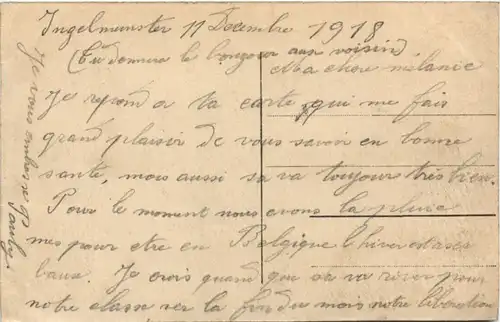 Ingelmunster 11 Decembre 1918
(Tu donnera le bonjour aux voisin)
Ma chere mélanie
Je repond a ta carte qui me fais
grand plaisir de vous savoir en bonne
santé, mois aussi sa va toujours très bien.
Pour le moment nous avons la pluie
mes pour etre en Belgique l'hiver est ases
baux. Je crois quand que sa va river pour
notre classe ver la fin du mois notre libération
Je vous embrasse